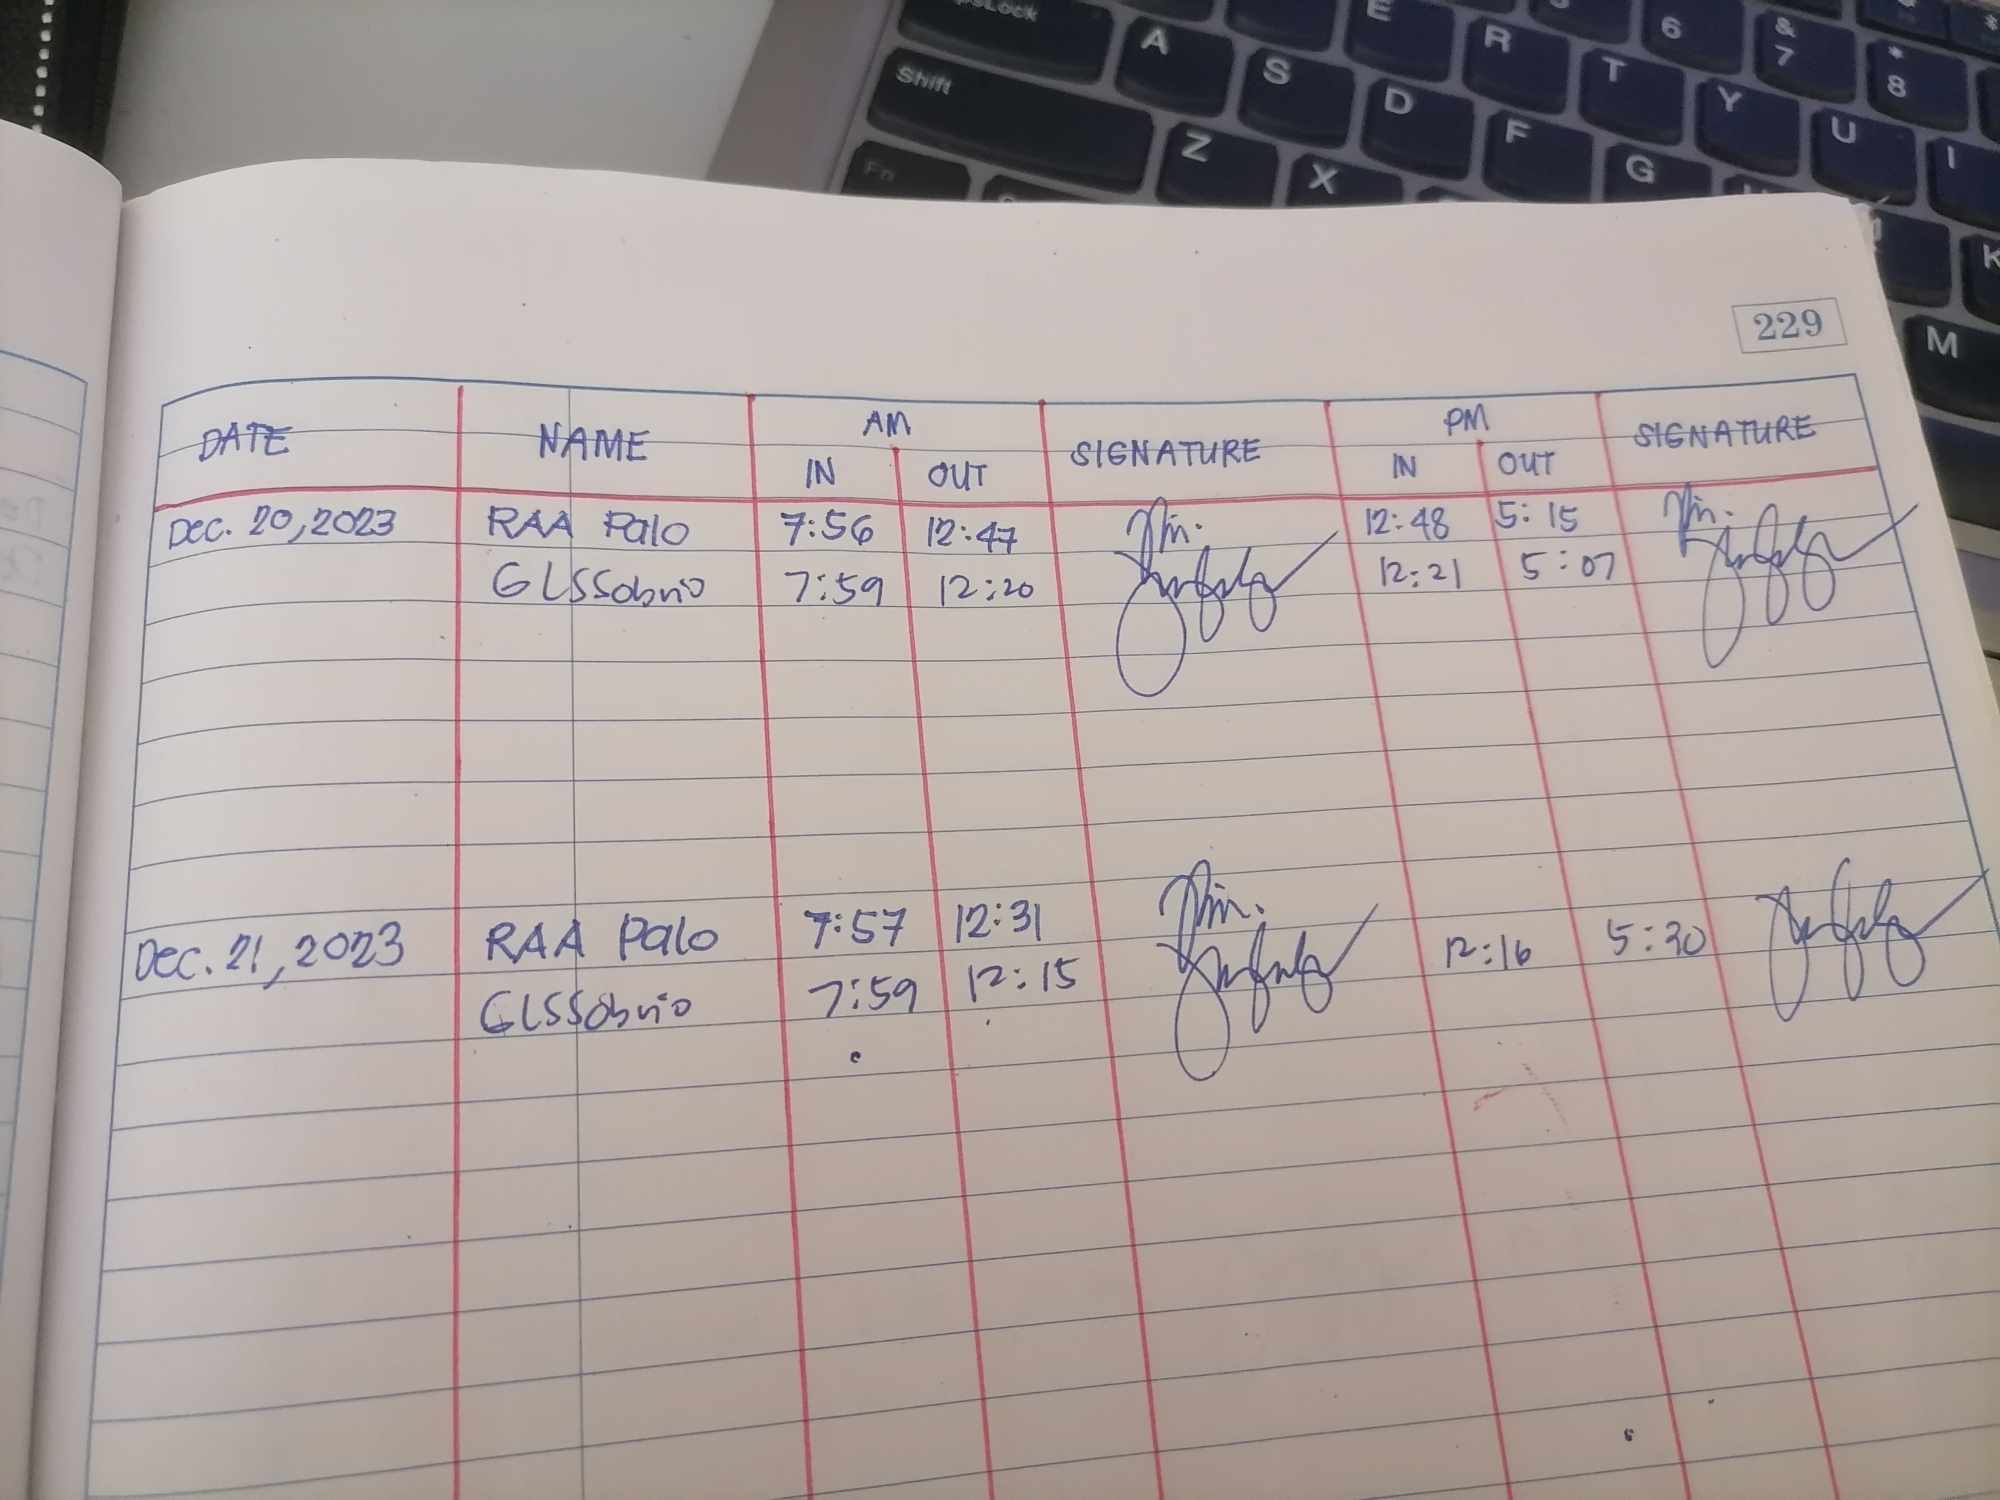 CapsLock A S D E R T Y U I 6 & 7 * 8
Shift Z X F G
Fn K M
229
DATE NAME AM SIGNATURE PM SIGNATURE
IN OUT IN OUT
Dec. 20, 2023 RAA Palo 7:56 12:47 12:48 5:15
GLSSobrio 7:59 12:20 12:21 5:07
Dec. 21, 2023 RAA Palo 7:57 12:31
GLSSobrio 7:59 12:15 12:16 5:30